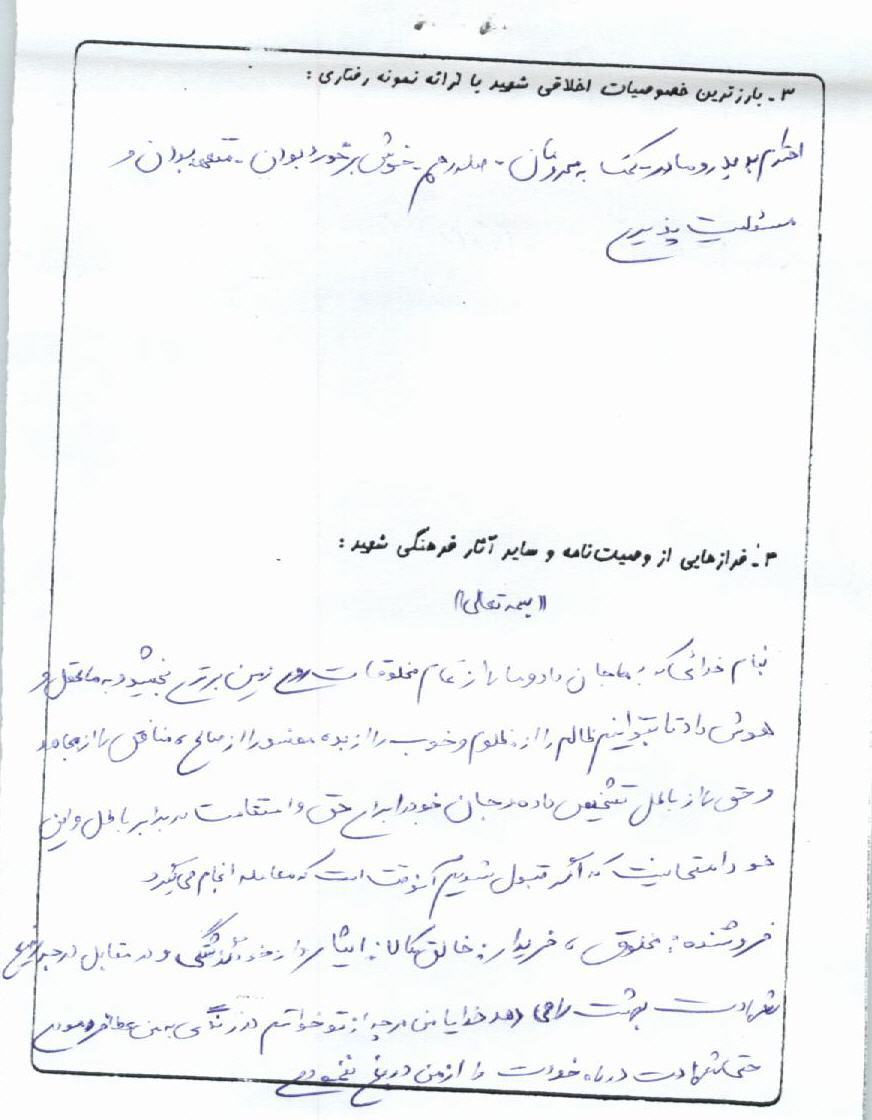 ۳ـ بارزترین خصوصیات اخلاقی شهید با ارائه نمونه رفتاری :
احترام به پدر و مادر - کمک به محرومان - صله رحم - خوش برخورد بودن - متعهد بودن و
مسئولیت پذیری
۴ـ فرازهایی از وصیت‌نامه و سایر آثار فرهنگی شهید :
((بسمه تعالی))
بنام خدائی که به ما جان داد و ما را از تمام مخلوقات روی زمین برتری بخشید و به ما عقل و
هوش داد تا بتوانیم ظالم را از مظلوم و خوب را از بد، مفسد را از صالح، منافق را از مجاهد
و حق را از باطل تشخیص داده و جان خود را برای حق و استقامت در برابر باطل و این
خود امتحانیست که اگر قبول شویم آنوقت است که معامله انجام می‌گیرد
فروشنده : مخلوق ، خریدار : خالق کالا : ایثار و از خود گذشتگی و در مقابل درجه رفیع
شهادت بهشت را می دهد خدایا من هرچه از تو خواستم در زندگی به من عطا فرمودی
حتی شهادت در راه خودت را از من دریغ ننمودی